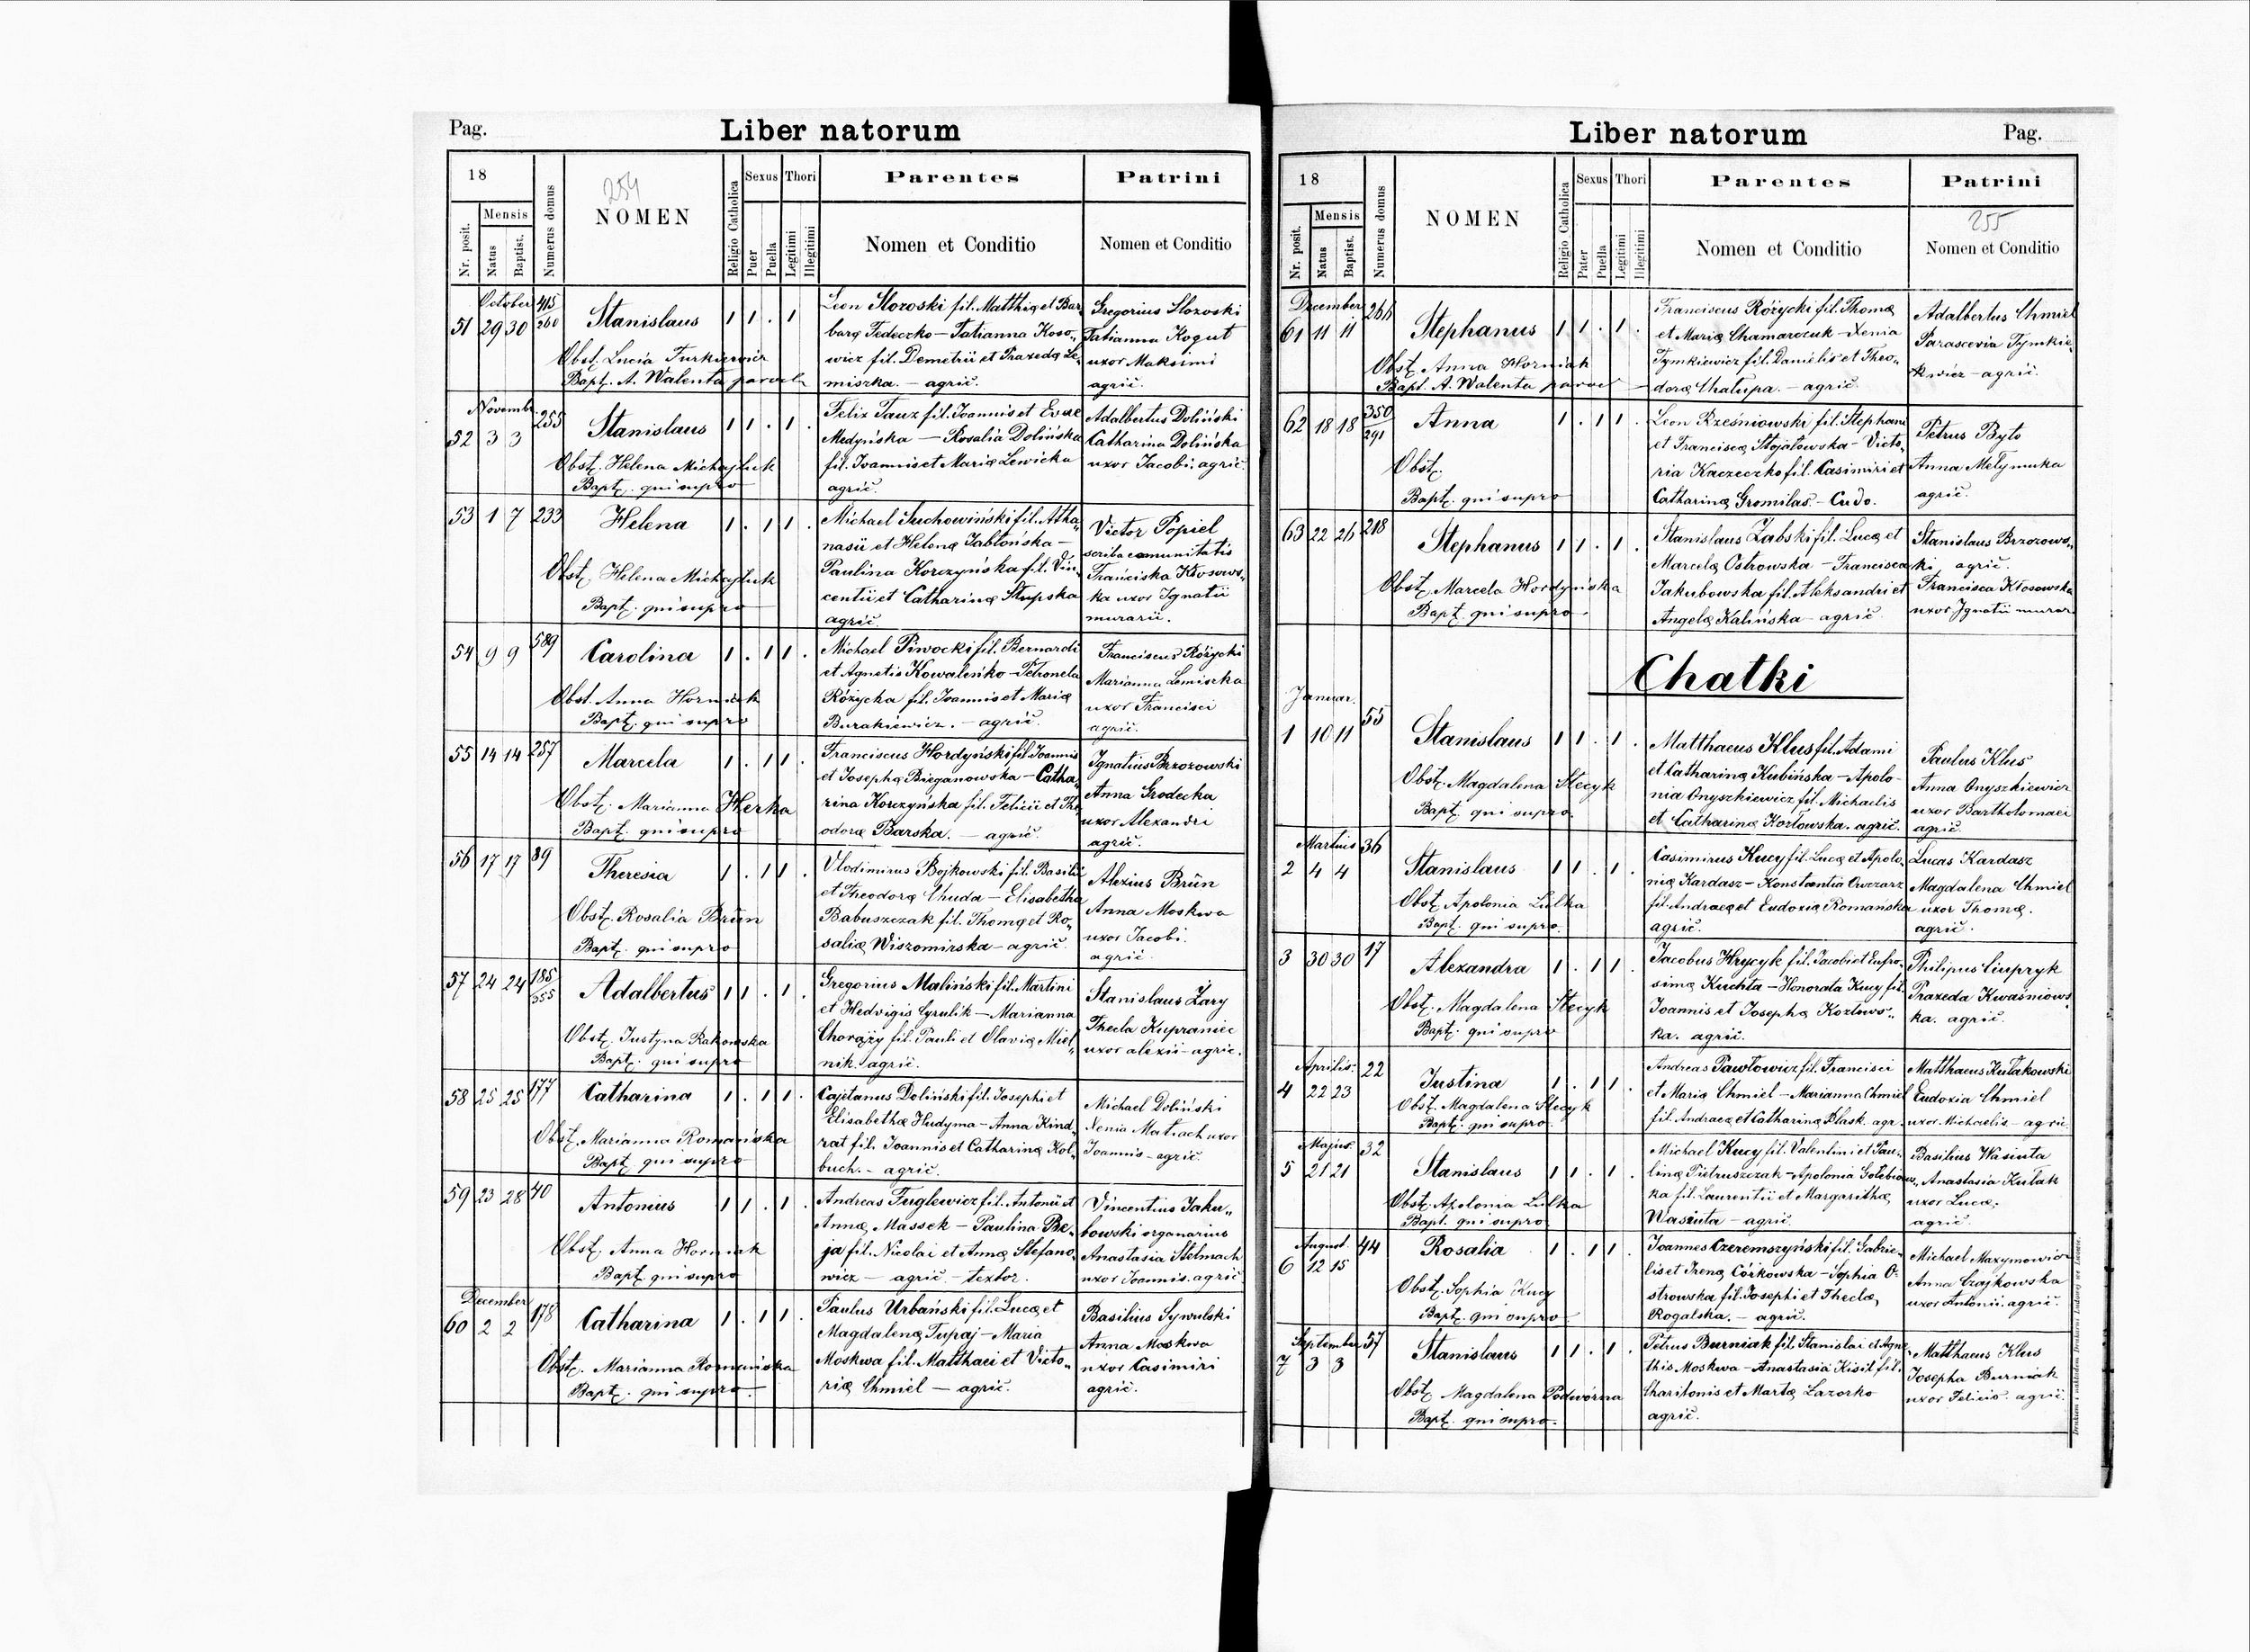 Pag.
Liber natorum
18
254
NOMEN
Nr. posit.
Mensis
Natus
Baptist.
Numerus domus
Religio Catholica
Sexus
Puer
Puella
Thori
Legitimi
Illegitimi
Parentes
Nomen et Conditio
Patrini
Nomen et Conditio
October
51 29 30 415/260 Stanislaus 1 1 . 1
Obst. Lucia Turkiewicz
Bapt. A. Walenta paroch
Leon Slozoski fil. Matthię et Bar„
barę Fedeczko – Tatianna Koso„
wicz fil. Demetrii et Praxedę Le„
miszka. – agric.
Gregorius Slozoski
Tatianna Kogut
uxor Maksimi
agric.
Novembr.
52 3 3 255 Stanislaus 1 1 . 1 .
Obst. Helena Michajluk
Bapt. qui supra
Felix Tauz fil. Joannis et Evae
Medyńska – Rosalia Dolińska
fil. Joannis et Marię Lewicka
agric.
Adalbertus Doliński
Catharina Dolińska
uxor Jacobi. agric.
53 1 7 233 Helena 1 . 1 1 .
Obst. Helena Michajluk
Bapt. qui supra
Michael Suchowiński fil. Atha„
nasii et Helenę Jabłońska –
Paulina Korczyńska fil. Vin„
centii et Catharinę Słupska
agric.
Victor Popiel
scriba comunitatis
Franciska Kłosows„
ka uxor Ignatii
murarii.
54 9 9 589 Carolina 1 . 1 1 .
Obst. Anna Horniak
Bapt. qui supra
Michael Piwocki fil. Bernardi
et Agnetis Kowaleńko – Petronela
Różycka fil. Joannis et Marię
Burakiewicz. – agric.
Franciscus Różycki
Marianna Lemiszka
uxor Francisci
agric.
55 14 14 257 Marcela 1 . 1 1 .
Obst. Marianna Herka
Bapt. qui supra
Franciscus Hordyński fil. Joannis
et Josephę Bieganowska – Catha„
rina Korczyńska fil. Felicii et The„
odorę Barska. – agric.
Ignatius Brzozowski
Anna Grodecka
uxor Alexandri
agric.
56 17 17 89 Theresia 1 . 1 1 .
Obst. Rosalia Brün
Bapt. qui supra
Vlodimirus Bojkowski fil. Basilii
et Theodorę Chuda – Elisabetha
Babuszczak fil. Thomę et Ro„
salię Wiszomirska – agric.
Alexius Brün
Anna Moskwa
uxor Jacobi.
agric.
57 24 24 185/355 Adalbertus 1 1 . 1 .
Obst. Justyna Rakowska
Bapt. qui supra
Gregorius Maliński fil. Martini
et Hedvigis Cyrulik – Marianna
Chorąży fil. Pauli et Olavię Miel„
nik. agric.
Stanislaus Żary
Thecla Kupraniec
uxor alexii – agric.
58 25 25 177 Catharina 1 . 1 1 .
Obst. Marianna Romańska
Bapt. qui supra
Cajetanus Doliński fil. Josephi et
Elisabethę Hudyma – Anna Kind„
rat fil. Joannis et Catharinę Kol„
buch. – agric.
Michael Doliński
Xenia Matiach uxor
Joannis – agric.
59 23 28 40 Antonius 1 1 . 1 .
Obst. Anna Horniak
Bapt. qui supra
Andreas Fuglewicz fil. Antonii et
Annę Massek – Paulina Be„
ja fil. Nicolai et Annę Stefano„
wicz – agric. – textor.
Vincentius Jaku„
bowski organarius
Anastasia Stelmach
uxor Joannis. agric
December
60 2 2 178 Catharina 1 . 1 1 .
Obst. Marianna Romańska
Bapt. qui supra
Paulus Urbański fil. Lucę et
Magdalenę Tupaj – Maria
Moskwa fil. Matthaei et Victo„
rię Chmiel – agric.
Basilius Sywulski
Anna Moskwa
uxor Casimiri
agric.
Liber natorum
Pag.
18
NOMEN
Nr. posit.
Mensis
Natus
Baptist.
Numerus domus
Religio Catholica
Sexus
Pater
Puella
Thori
Legitimi
Illegitimi
Parentes
Nomen et Conditio
Patrini
255
Nomen et Conditio
December
61 11 11 266 Stephanus 1 1 . 1 .
Obst. Anna Horniak
Bapt. A. Walenta paroch
Franciscus Różycki fil. Thomę
et Marię Chamarczuk – Xenia
Tymkiewicz fil. Danielis et Theo„
dorę Chalupa. – agric.
Adalbertus Chmiel
Parascevia Tymkie„
wicz – agric.
62 18 18 350/291 Anna 1 . 1 1 .
Obst.
Bapt. qui supra
Leon Rześniowski fil. Stephani
et Franciscę Stojałowska – Victo„
ria Kaczeczko fil. Casimiri et
Catharinę Gromilas. – Cudo.
Petrus Byto
Anna Melymuka
agric.
63 22 26 218 Stephanus 1 1 . 1 .
Obst. Marcela Hordyńska
Bapt. qui supra
Stanislaus Ząbski fil. Lucę et
Marcelę Ostrowska – Francisca
Jakubowska fil. Aleksandri et
Angelę Kalińska – agric.
Stanislaus Brzozows„
ki agric.
Francisca Kłosowska
uxor Ignatii murar
Chatki
Januar.
1 10 11 55 Stanislaus 1 1 . 1 .
Obst. Magdalena Stecyk
Bapt. qui supra.
Matthaeus Klus fil. Adami
et Catharinę Kubińska – Apolo„
nia Onyszkiewicz fil. Michaelis
et Catharinę Kozłowska. agric.
Paulus Klus
Anna Onyszkiewicz
uxor Bartholomaei
agric.
Martius
2 4 4 36 Stanislaus 1 1 . 1 .
Obst. Apolonia Lulka
Bapt. qui supra.
Casimirus Kucy fil. Lucę et Apolo„
nię Kardasz – Konstantia Owczarz
fil. Andraeę et Eudoxię Romańska
agric.
Lucas Kardasz
Magdalena Chmiel
uxor Thomę.
agric.
3 30 30 17 Alexandra 1 . 1 1 .
Obst. Magdalena Stecyk
Bapt. qui supra
Jacobus Hrycyk fil. Jacobi et Eufro„
simę Kuchta – Honorata Kucy fil.
Joannis et Josephę Kozłows„
ka. agric.
Philipus Ciupryk
Praxeda Kwaśniows„
ka. agric.
Aprilis.
4 22 23 22 Justina 1 . 1 1 .
Obst. Magdalena Stecyk
Bapt. qui supra.
Andreas Pawłowicz fil. Francisci
et Marię Chmiel – Marianna Chmiel
fil. Andraeę et Catharinę Blask. agr.
Matthaeus Kułakowski
Eudoxia Chmiel
uxor Michaelis – agric.
Majus.
5 21 21 32 Stanislaus 1 1 . 1
Obst. Apolonia Lulka
Bapt. qui supra
Michael Kucy fil. Valentini et Pau„
linę Pietruszczak – Apolonia Gołębiows„
ka fil. Laurentii et Margarithę
Wasiuta – agric.
Basilius Wasiuta
Anastasia Kułak
uxor Lucę,
agric.
August.
6 12 15 44 Rosalia 1 . 1 1 .
Obst. Sophia Kucy
Bapt. qui supra
Joannes Czeremszyński fil. Gabrie„
lis et Irenę Córkowska – Sophia O„
strowska fil. Josephi et Theclę,
Rogalska. – agric.
Michael Maxymowicz
Anna Czajkowska
uxor Antonii. agric.
September
7 3 3 57 Stanislaus 1 1 . 1 .
Obst. Magdalena Podwórna
Bapt. qui supra.
Petrus Burniak fil. Stanislai et Agne„
this Moskwa – Anastasia Kisił fil.
Charitonis et Martę Lazorko
agric.
Matthaeus Klus
Josepha Burniak
uxor Felicis. agric.